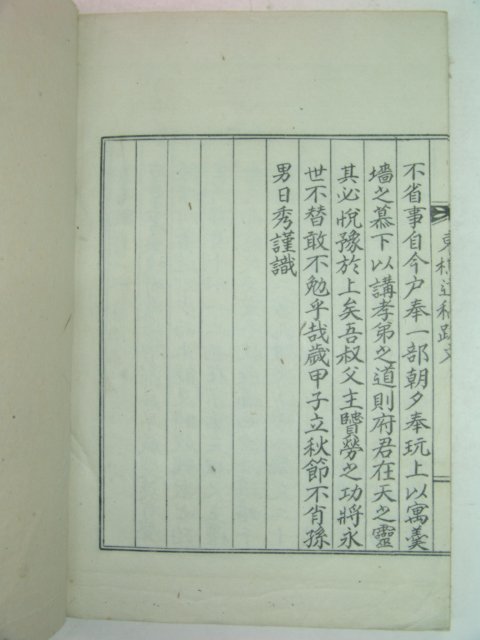 東村遺稿跋文
不省事自今户奉一部朝夕奉玩上以寓羹
墻之慕下以講孝第之道則府君在天之靈
其必悅豫於上矣吾叔父主賢勞之功將永
世不替敢不勉乎哉歲甲子立秋節不肖孫
男日秀謹識